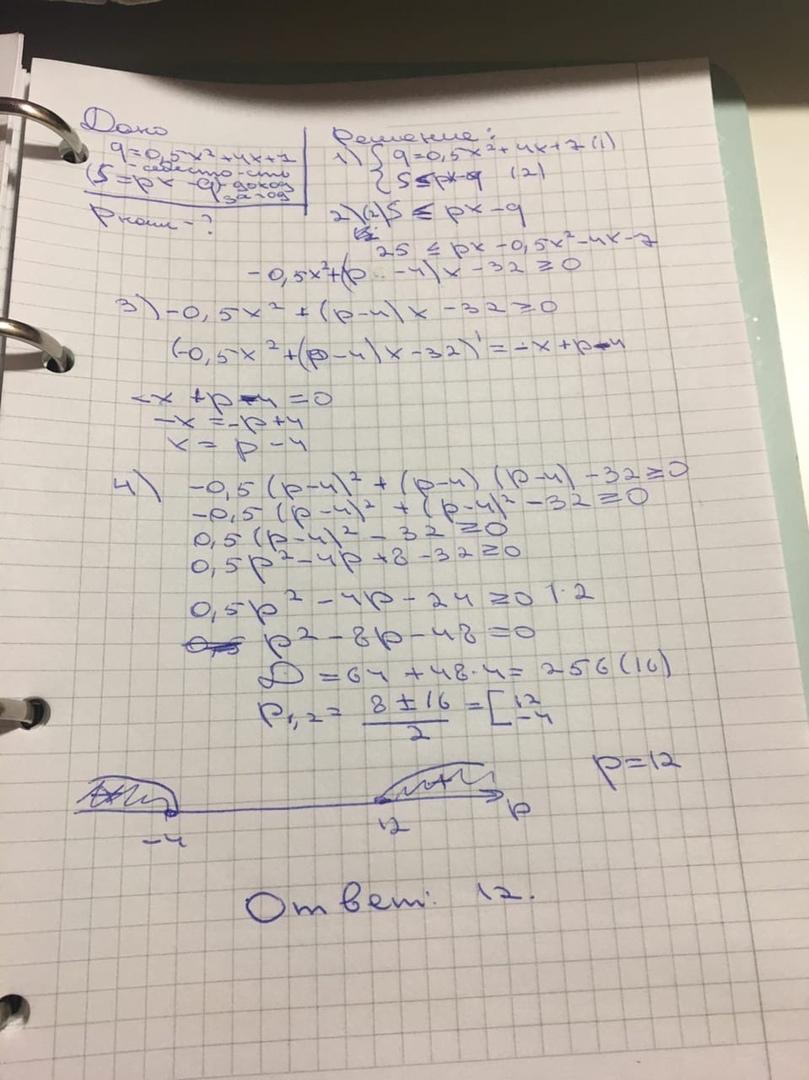 Дано
q=0,5x²+4x+7
- себесто-сть
(S=px-q)-доход за год
Pнаим-?
Решение:
1) { q=0,5x²+4x+7 (1)
{ S≤px-q (2)
2) (2) S ≤ px-q
25 ≤ px-0,5x²-4x-7
-0,5x²+(p-4)x-32≥0
3) -0,5x²+(p-4)x-32≥0
(-0,5x²+(p-4)x-32)'=-x+p-4
-x+p-4=0
-x=-p+4
x=p-4
4) -0,5(p-4)²+(p-4)(p-4)-32≥0
-0,5(p-4)²+(p-4)²-32≥0
0,5(p-4)²-32≥0
0,5p²-4p+8-32≥0
0,5p²-4p-24≥0 |·2
p²-8p-48=0
D=64+48·4=256(16)
p1,2=(8±16)/2=[12
-4
p=12
-4 12 p
Ответ: 12.